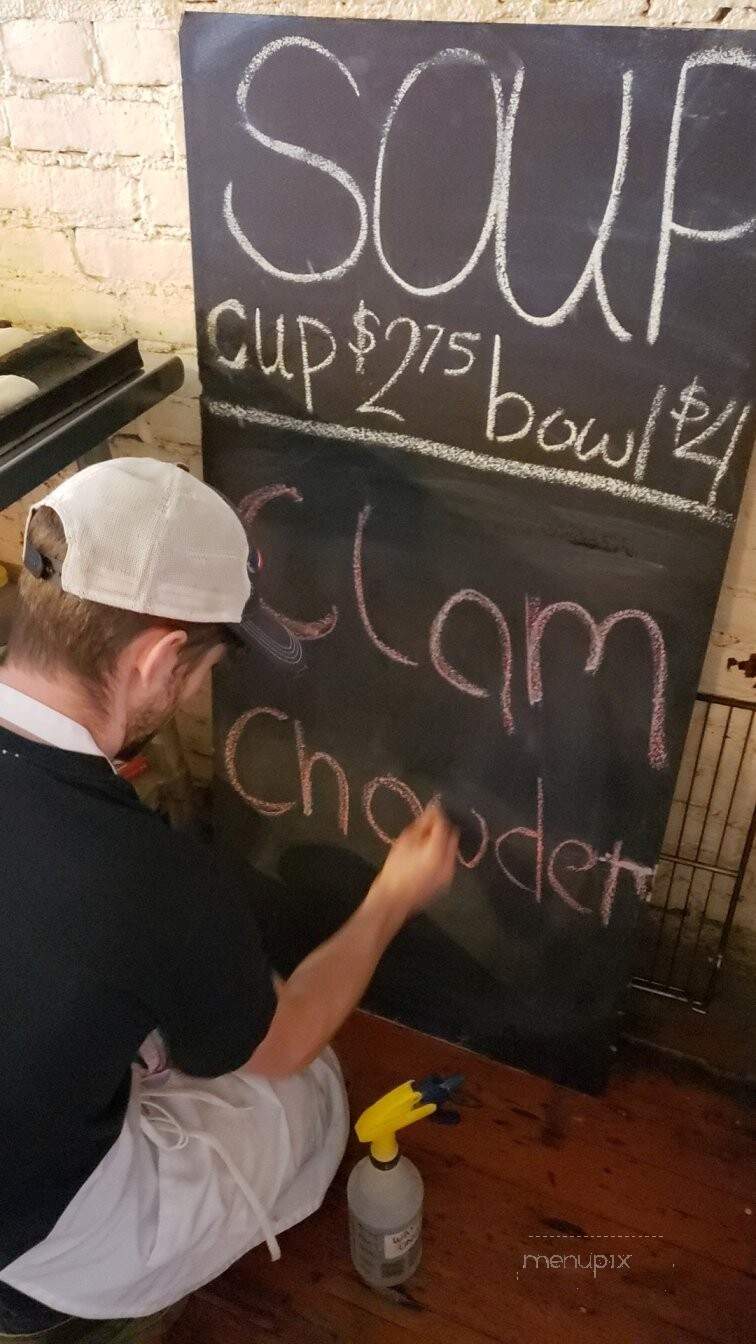 SOUP
cup $2.75 bowl $4
Clam
Chowder
menupix